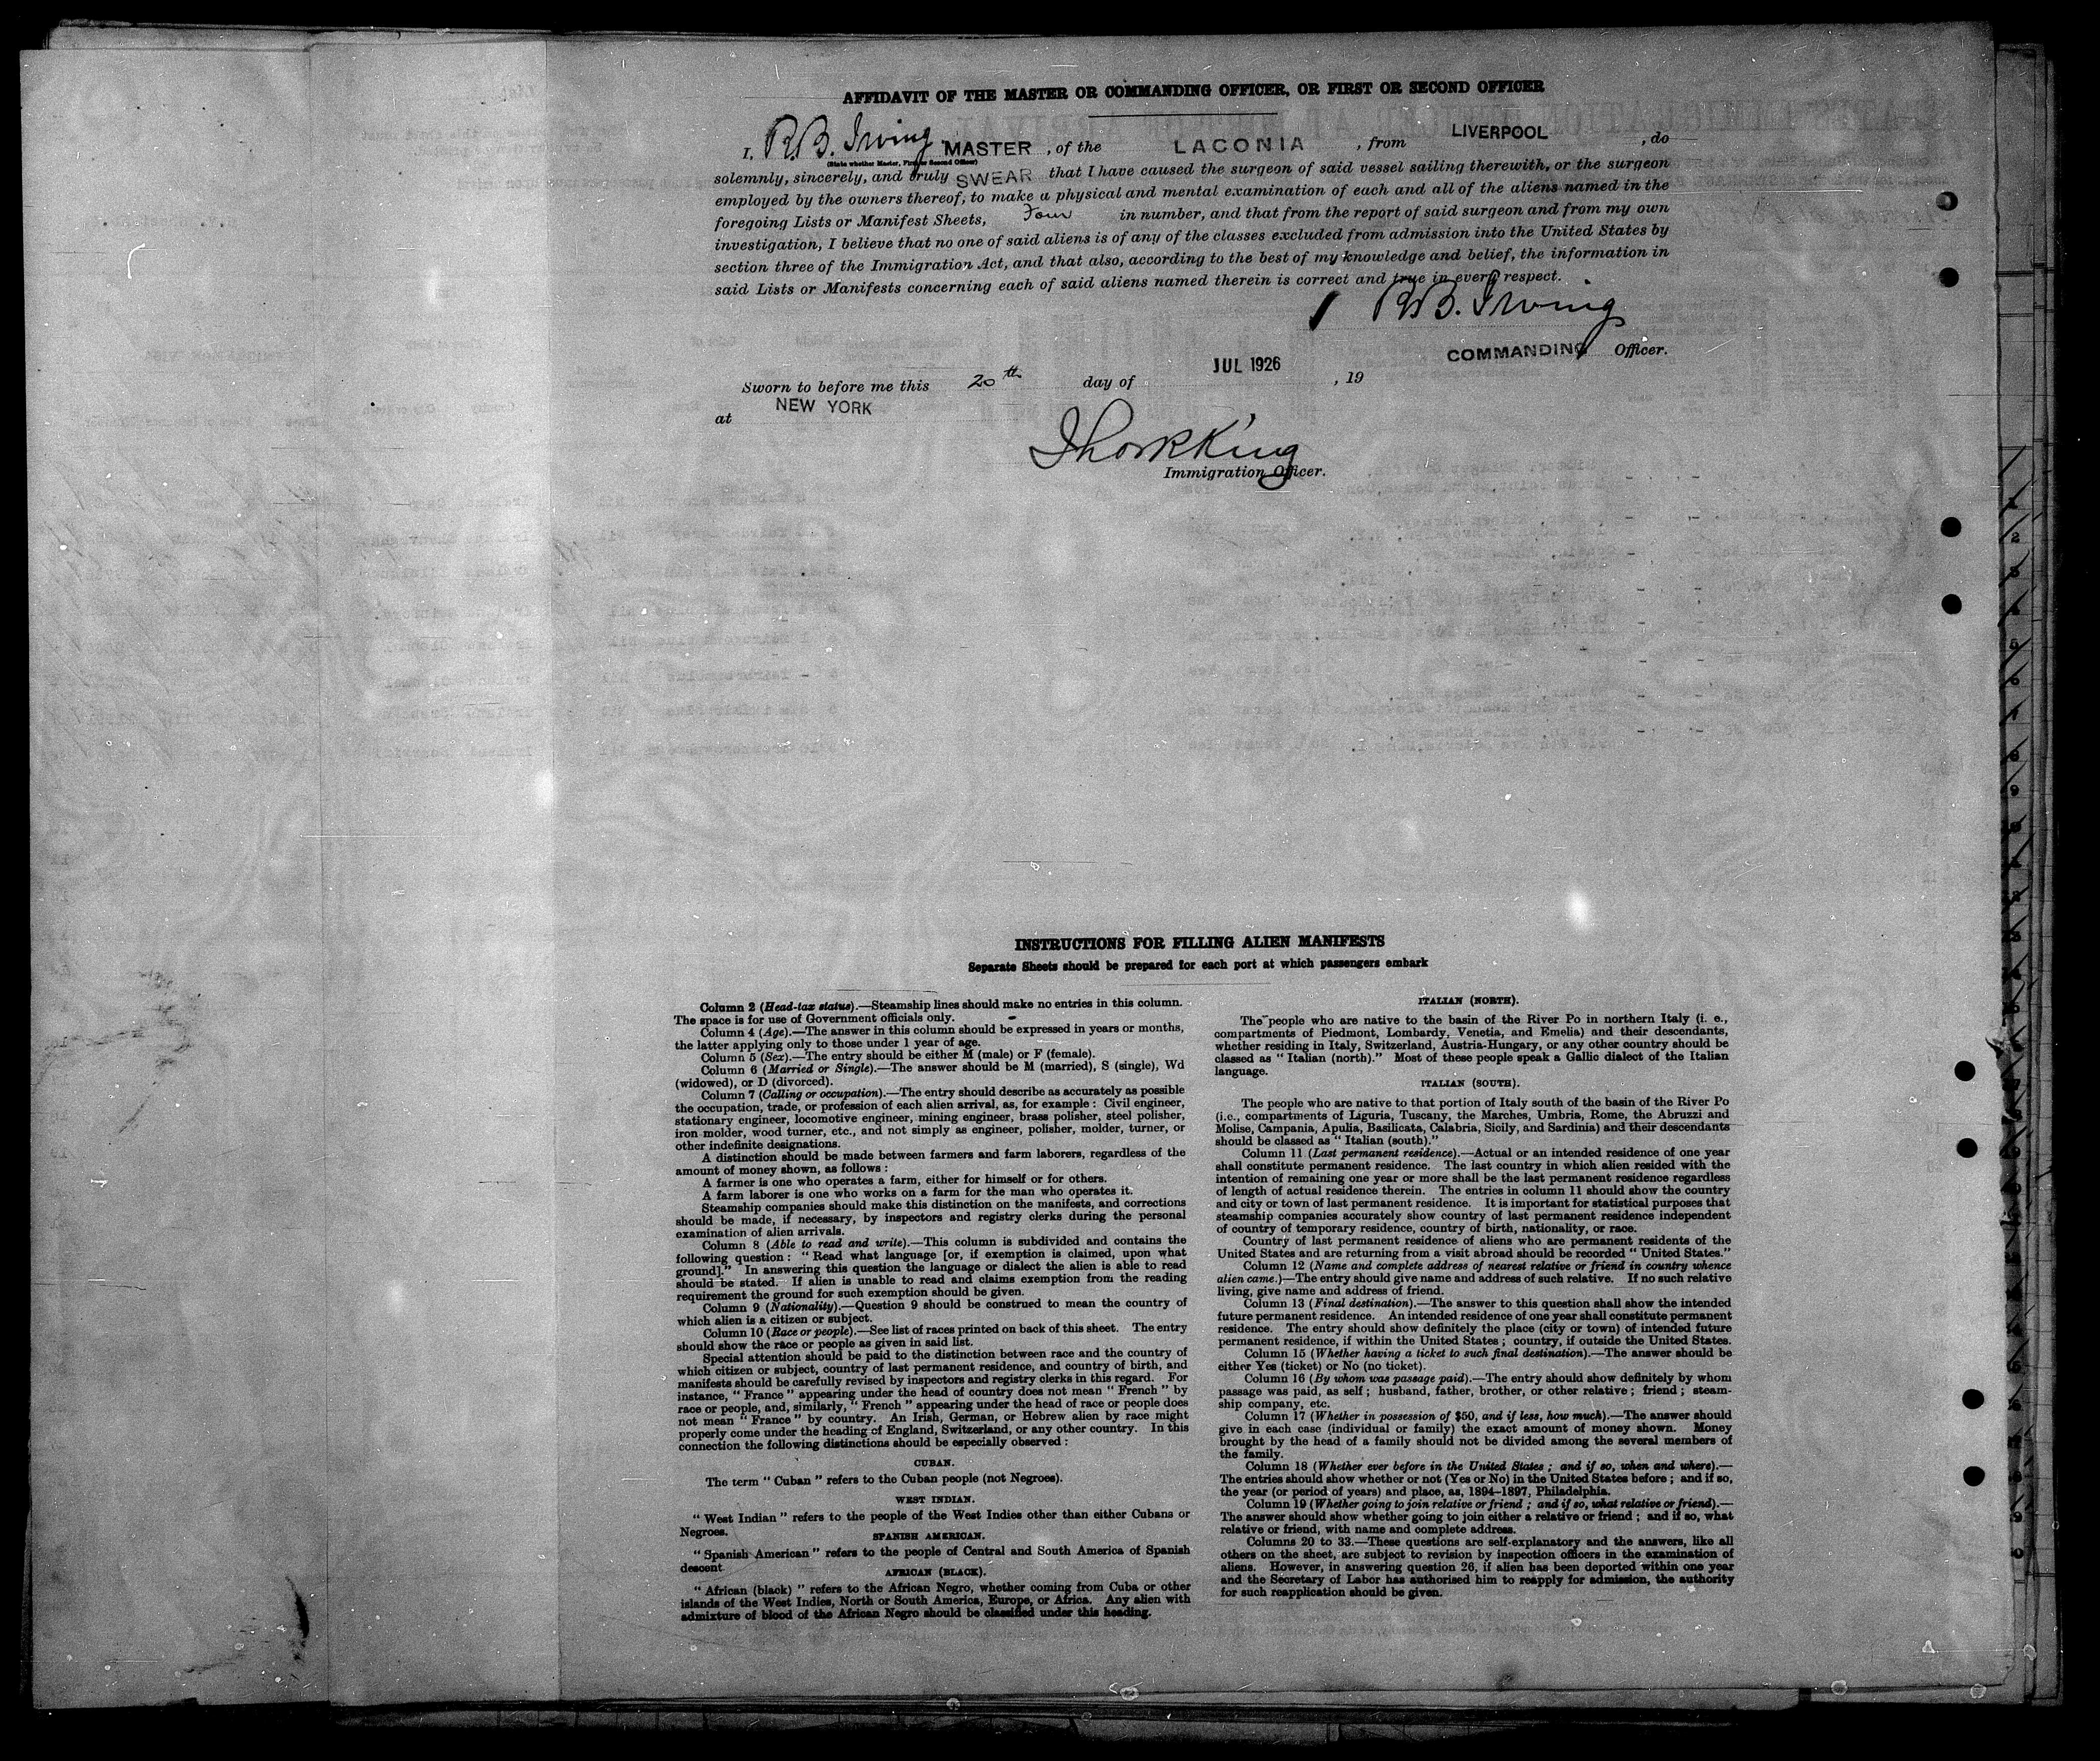 AFFIDAVIT OF THE MASTER OR COMMANDING OFFICER, OR FIRST OR SECOND OFFICER
I, R.B. Irving, MASTER, of the LACONIA, from LIVERPOOL, do
(State whether Master, First or Second Officer)
solemnly, sincerely, and truly SWEAR that I have caused the surgeon of said vessel sailing therewith, or the surgeon
employed by the owners thereof, to make a physical and mental examination of each and all of the aliens named in the
foregoing Lists or Manifest Sheets, Four in number, and that from the report of said surgeon and from my own
investigation, I believe that no one of said aliens is of any of the classes excluded from admission into the United States by
section three of the Immigration Act, and that also, according to the best of my knowledge and belief, the information in
said Lists or Manifests concerning each of said aliens named therein is correct and true in every respect.
R.B. Irving
COMMANDING Officer.
Sworn to before me this 20th day of JUL 1926, 19
at NEW YORK
King
Immigration Officer.
INSTRUCTIONS FOR FILLING ALIEN MANIFESTS
Separate Sheets should be prepared for each port at which passengers embark
Column 2 (Head-tax status).—Steamship lines should make no entries in this column.
The space is for use of Government officials only.
Column 4 (Age).—The answer in this column should be expressed in years or months,
the latter applying only to those under 1 year of age.
Column 5 (Sex).—The entry should be either M (male) or F (female).
Column 6 (Married or Single).—The answer should be M (married), S (single), Wd
(widowed), or D (divorced).
Column 7 (Calling or occupation).—The entry should describe as accurately as possible
the occupation, trade, or profession of each alien arrival, as, for example: Civil engineer,
stationary engineer, locomotive engineer, mining engineer, brass polisher, steel polisher,
iron molder, wood turner, etc., and not simply as engineer, polisher, molder, turner, or
other indefinite designations.
A distinction should be made between farmers and farm laborers, regardless of the
amount of money shown, as follows:
A farmer is one who operates a farm, either for himself or for others.
A farm laborer is one who works on a farm for the man who operates it.
Steamship companies should make this distinction on the manifests, and corrections
should be made, if necessary, by inspectors and registry clerks during the personal
examination of alien arrivals.
Column 8 (Able to read and write).—This column is subdivided and contains the
following question: "Read what language [or, if exemption is claimed, upon what
ground]." In answering this question the language or dialect the alien is able to read
should be stated. If alien is unable to read and claims exemption from the reading
requirement the ground for such exemption should be given.
Column 9 (Nationality).—Question 9 should be construed to mean the country of
which alien is a citizen or subject.
Column 10 (Race or people).—See list of races printed on back of this sheet. The entry
should show the race or people as given in said list.
Special attention should be paid to the distinction between race and the country of
which citizen or subject, country of last permanent residence, and country of birth, and
manifests should be carefully revised by inspectors and registry clerks in this regard. For
instance, "France" appearing under the head of country does not mean "French" by
race or people, and, similarly, "French" appearing under the head of race or people does
not mean "France" by country. An Irish, German, or Hebrew alien by race might
properly come under the heading of England, Switzerland, or any other country. In this
connection the following distinctions should be especially observed:
CUBAN.
The term "Cuban" refers to the Cuban people (not Negroes).
WEST INDIAN.
"West Indian" refers to the people of the West Indies other than either Cubans or
Negroes.
SPANISH AMERICAN.
"Spanish American" refers to the people of Central and South America of Spanish
descent
AFRICAN (BLACK).
"African (black)" refers to the African Negro, whether coming from Cuba or other
islands of the West Indies, North or South America, Europe, or Africa. Any alien with
admixture of blood of the African Negro should be classified under this heading.
ITALIAN (NORTH).
The people who are native to the basin of the River Po in northern Italy (i. e.,
compartments of Piedmont, Lombardy, Venetia, and Emelia) and their descendants,
whether residing in Italy, Switzerland, Austria-Hungary, or any other country should be
classed as "Italian (north)." Most of these people speak a Gallic dialect of the Italian
language.
ITALIAN (SOUTH).
The people who are native to that portion of Italy south of the basin of the River Po
(i.e., compartments of Liguria, Tuscany, the Marches, Umbria, Rome, the Abruzzi and
Molise, Campania, Apulia, Basilicata, Calabria, Sicily, and Sardinia) and their descendants
should be classed as "Italian (south)."
Column 11 (Last permanent residence).—Actual or an intended residence of one year
shall constitute permanent residence. The last country in which alien resided with the
intention of remaining one year or more shall be the last permanent residence regardless
of length of actual residence therein. The entries in column 11 should show the country
and city or town of last permanent residence. It is important for statistical purposes that
steamship companies accurately show country of last permanent residence independent
of country of temporary residence, country of birth, nationality, or race.
Country of last permanent residence of aliens who are permanent residents of the
United States and are returning from a visit abroad should be recorded "United States."
Column 12 (Name and complete address of nearest relative or friend in country whence
alien came.)—The entry should give name and address of such relative. If no such relative
living, give name and address of friend.
Column 13 (Final destination).—The answer to this question shall show the intended
future permanent residence. An intended residence of one year shall constitute permanent
residence. The entry should show definitely the place (city or town) of intended future
permanent residence, if within the United States; country, if outside the United States.
Column 15 (Whether having a ticket to such final destination).—The answer should be
either Yes (ticket) or No (no ticket).
Column 16 (By whom was passage paid).—The entry should show definitely by whom
passage was paid, as self; husband, father, brother, or other relative; friend; steam-
ship company, etc.
Column 17 (Whether in possession of $50, and if less, how much).—The answer should
give in each case (individual or family) the exact amount of money shown. Money
brought by the head of a family should not be divided among the several members of
the family.
Column 18 (Whether ever before in the United States; and if so, when and where).—
The entries should show whether or not (Yes or No) in the United States before; and if so,
the year (or period of years) and place, as, 1894–1897, Philadelphia.
Column 19 (Whether going to join relative or friend; and if so, what relative or friend).—
The answer should show whether going to join either a relative or friend; and if so, what
relative or friend, with name and complete address.
Columns 20 to 33.—These questions are self-explanatory and the answers, like all
others on the sheet, are subject to revision by inspection officers in the examination of
aliens. However, in answering question 26, if alien has been deported within one year
and the Secretary of Labor has authorised him to reapply for admission, the authority
for such reapplication should be given.